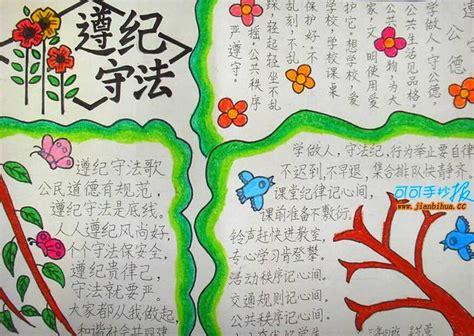 遵纪
守法
公德
学做人，守公德，
公共生活见品格。
公共
文明使用爱
保护好。不
学校课桌
想学校，爱
轻起轻坐不乱
摇，公共秩序
严遵守。
遵纪守法歌
公民道德有规范，
遵纪守法是底线。
人人遵纪风尚好，
个个守法保安全。
遵纪贵律己，
守法就要严。
大家都从我做起，
和谐社会共同建
学做人，守法纪，行为举止要自律
不迟到，不早退，集合排队快静齐，
课堂纪律记心间，
课前准备不敷衍。
铃声赶快进教室，
专心学习肯登攀。
活动秩序记心间。
交通规则记心间。
公共秩序记心间，
可可手抄报
www.jianbihua.cc